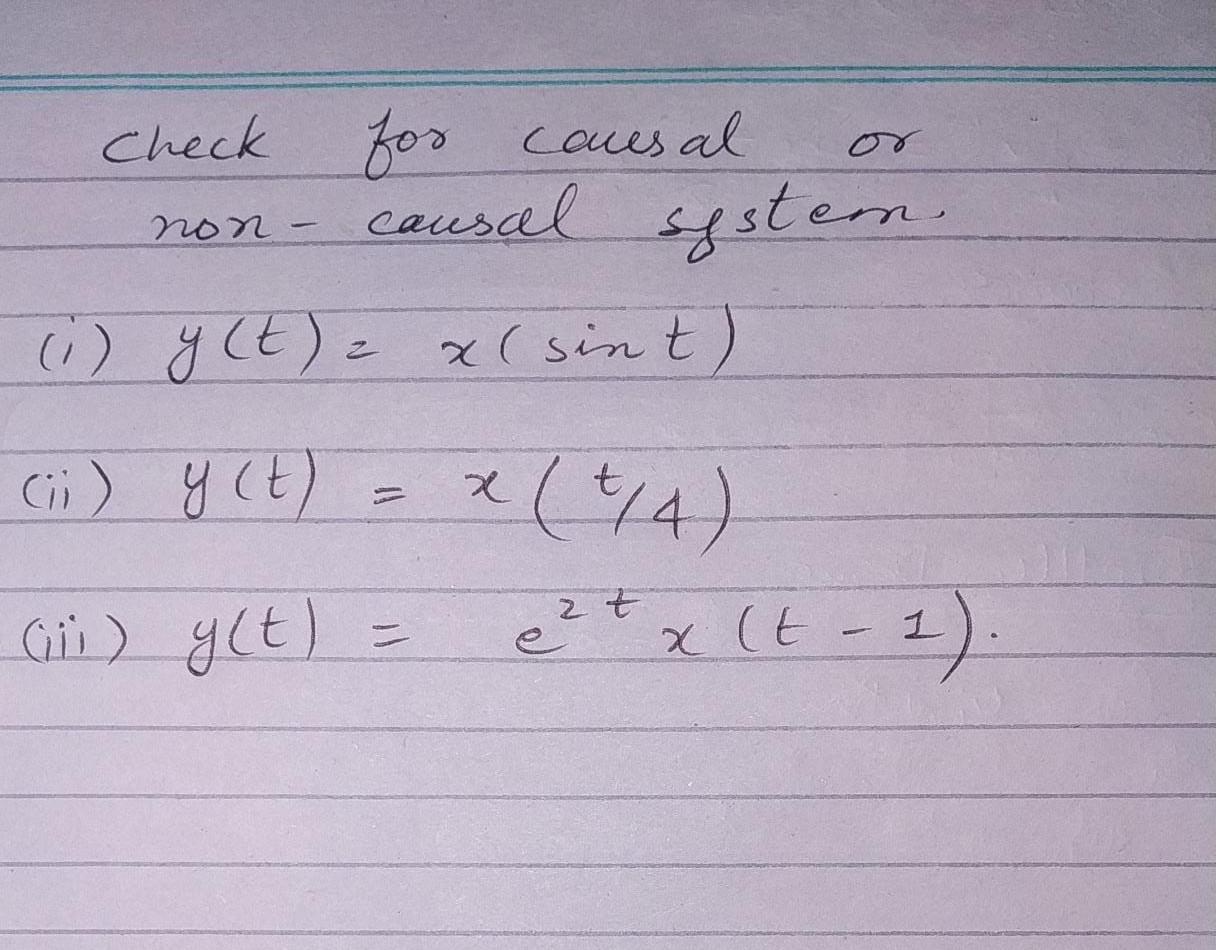 check for causal or
non - causal system.
(i) y(t) = x(sin t)
(ii) y(t) = x(t/4)
(iii) y(t) = e^2t x(t - 1).